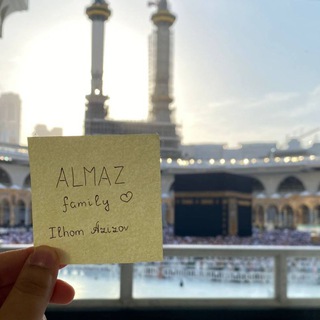 ALMAZ
family ♡
Ilhom Azizov